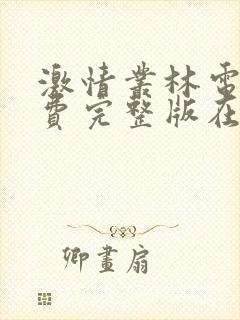 激情丛林電
費完整版在
卿畫扇